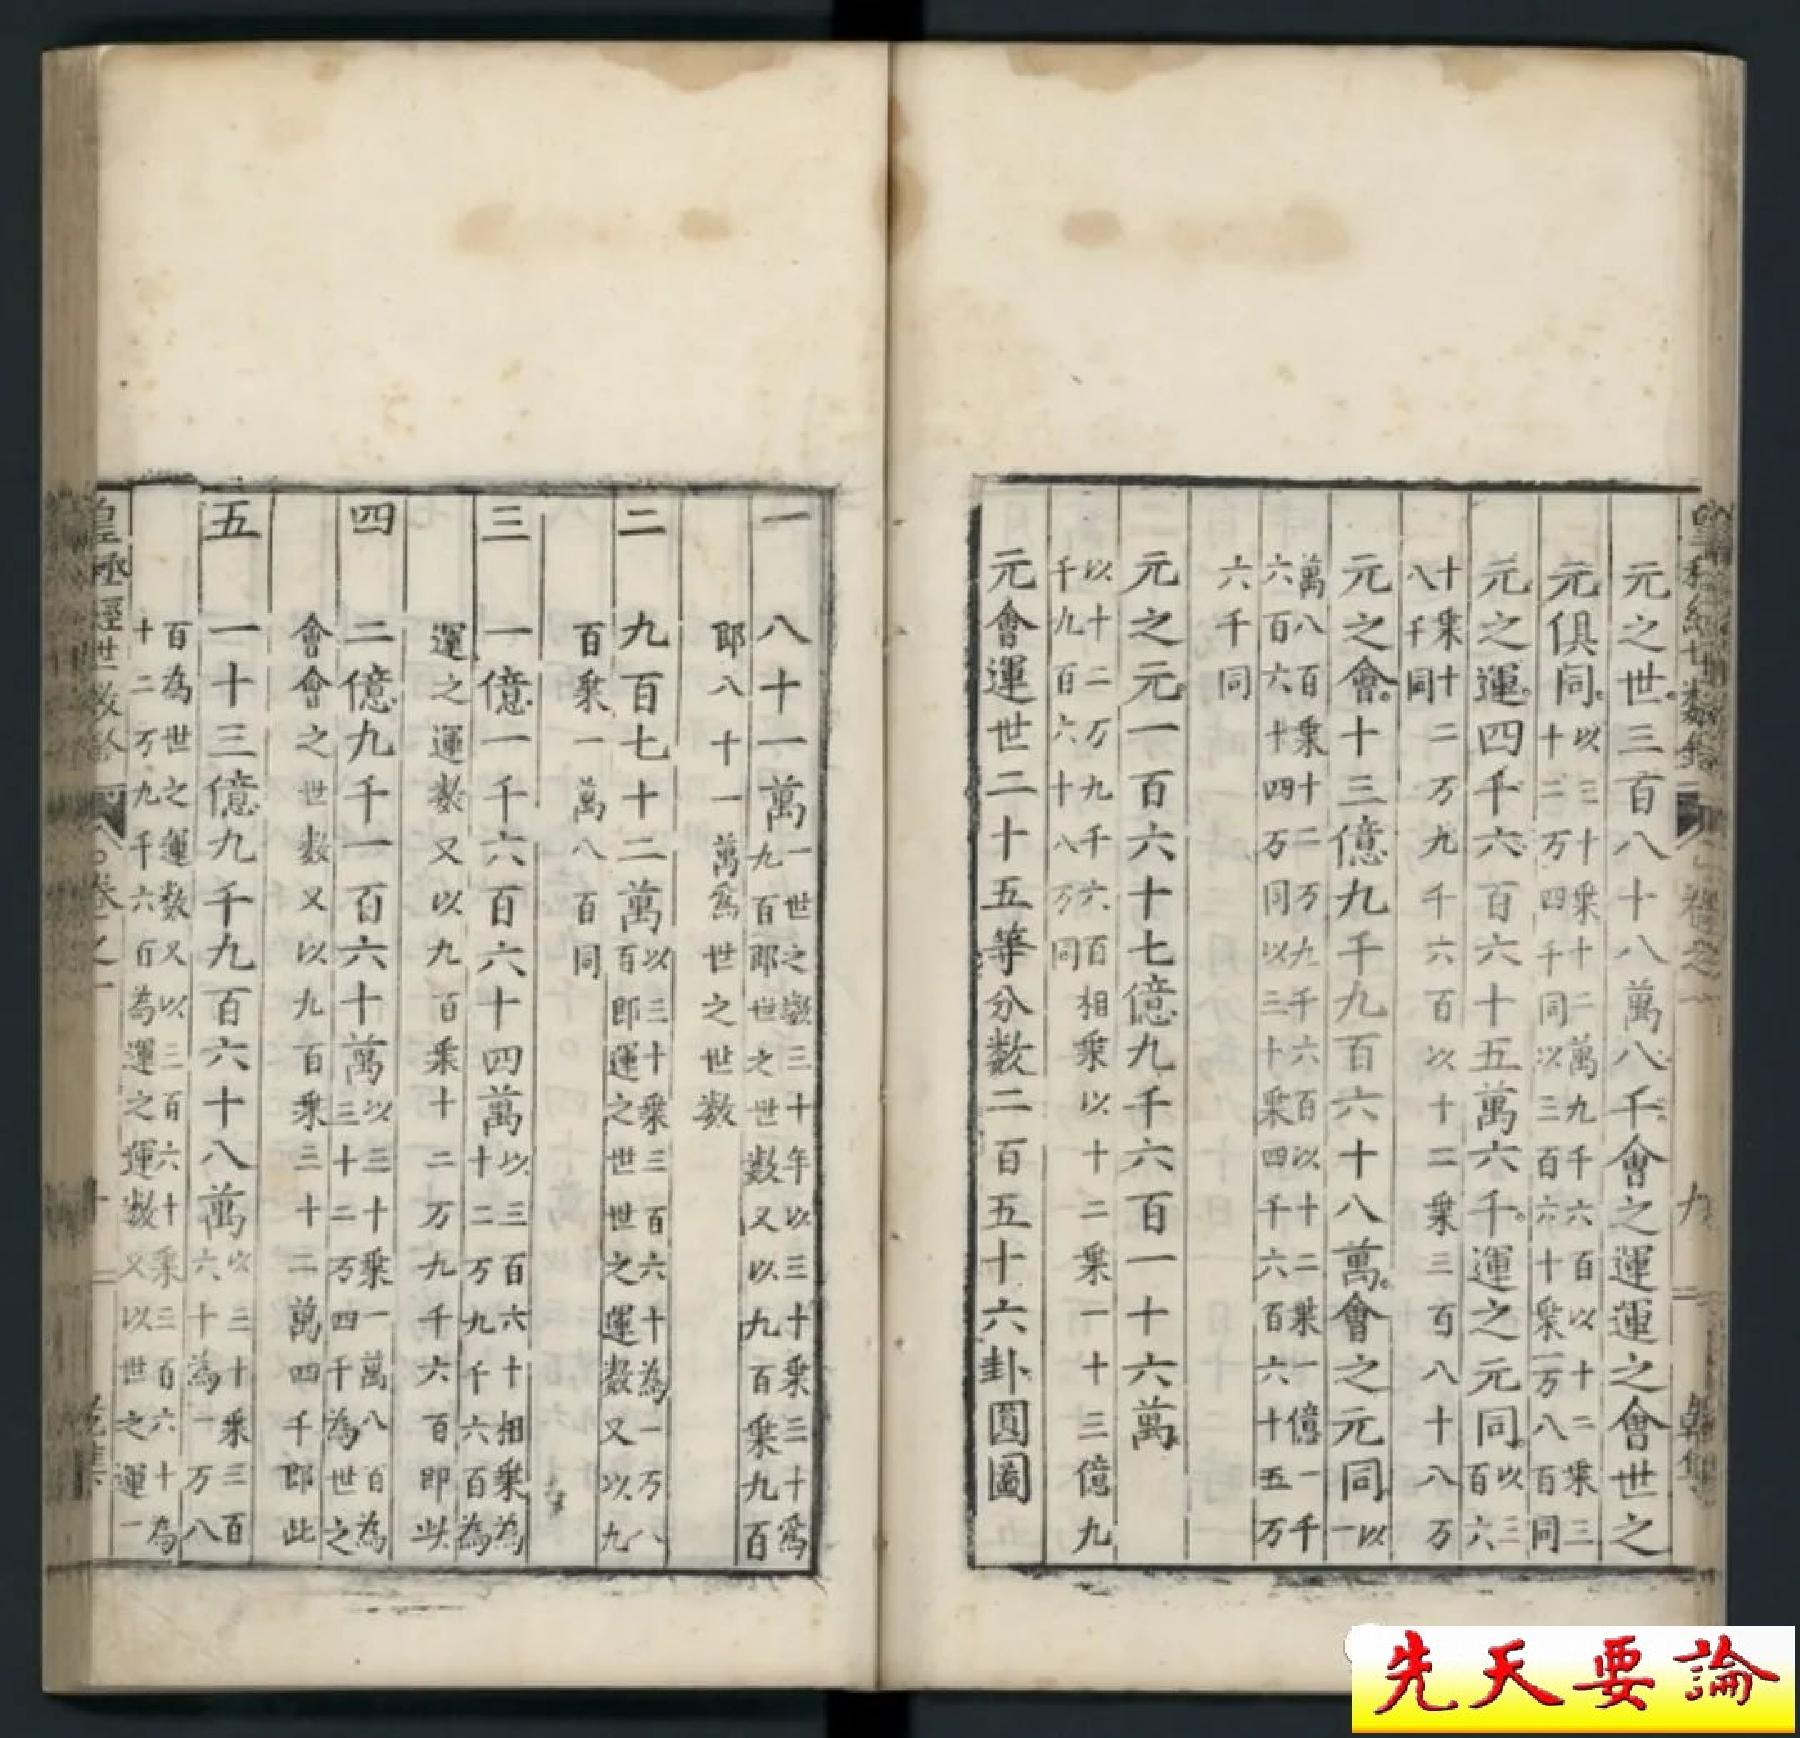 元之世三百八十八萬八千會之運運之會世之
元俱同以三十乘十二萬九千六百以十二乘三十二万四千同以三百六十乘一万八百同
元之運四千六百六十五萬六千運之元同以三百六
十乘十二万九千六百以十二乘三百八十八万八千同
元之會十三億九千九百六十八萬會之元同以一
萬八百乘十二万九千六百以十二乘一億一千六百六十四万同以三十乘四千六百六十五万
六千同
元之元一百六十七億九千六百一十六萬
以十二万九千六百相乘以十二乘一十三億九千九百六十八万同
元會運世二十五等分数二百五十六卦圓圖
一 八十一萬一世之數三十年以三十乘三十爲九百即世之世数又以九百乘九百
即八十一萬爲世之世数
二 九百七十二萬以三十乘三百六十為一万八百即運之世世之運数又以九
百乘一萬八百同
三 一億一千六百六十四萬以三百六十相乘為十二万九千六百為
運之運数又以九百乘十二万九千六百即此
四 二億九千一百六十萬以三十乘一萬八百為三十二万四千為世之
會會之世数又以九百乘三十二萬四千即此
五 一十三億九千九百六十八萬以三十乘三百六十為一万八
百為世之運数又以三百六十乘三百六十為十二万九千六百為運之運数又以世之運一
皇極經世数 卷之一 十 乾集
先天要論